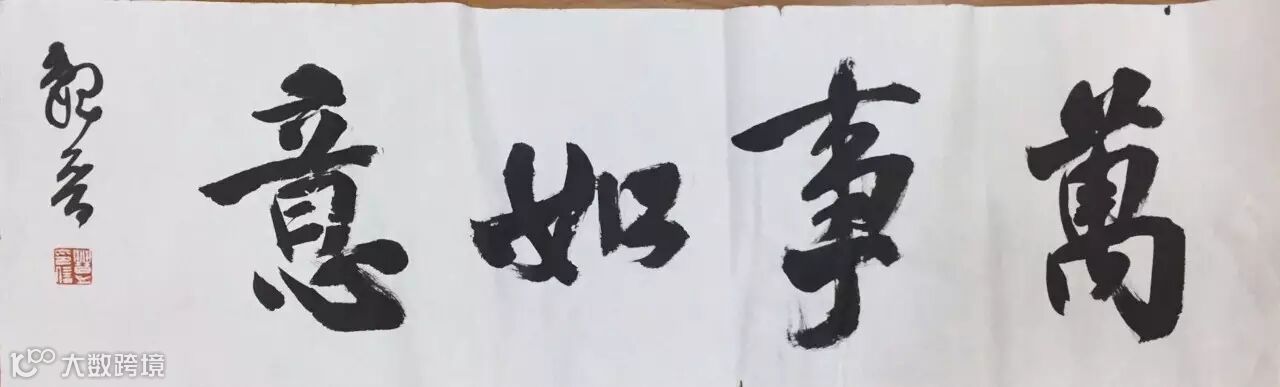 萬事如意
大数跨境